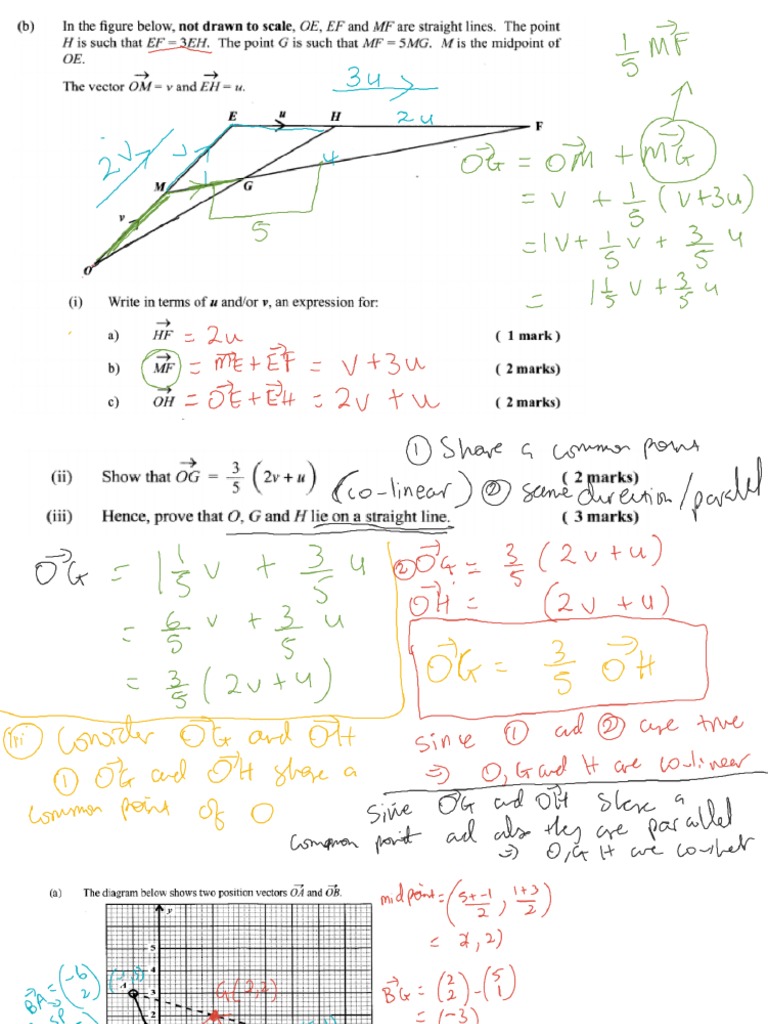 (b) In the figure below, not drawn to scale, OE, EF and MF are straight lines. The point
H is such that EF = 3EH. The point G is such that MF = 5MG. M is the midpoint of
OE.
The vector OM = v and EH = u.
1/5 MF
3u
E u H 2u F
2v v
OG = OM + MG
M 1 G 4
= v + 1/5 (v+3u)
v
5
= 1v + 1/5 v + 3/5 u
O
= 1 1/5 v + 3/5 u
(i) Write in terms of u and/or v, an expression for:
a) HF = 2u ( 1 mark )
b) MF = ME + EF = v + 3u ( 2 marks)
c) OH = OE + EH = 2v + u ( 2 marks)
① Share a common point
(ii) Show that OG = 3/5 (2v + u) ( 2 marks)
(co-linear) ② same direction/parallel
(iii) Hence, prove that O, G and H lie on a straight line. ( 3 marks)
OG = 1 1/5 v + 3/5 u
= 6/5 v + 3/5 u
= 3/5 (2v + u)
② OG = 3/5 (2v + u)
OH = (2v + u)
OG = 3/5 OH
(iii) Consider OG and OH
① OG and OH share a
common point of O
Since ① ad ② are true
⇒ O, G and H are co-linear
Sine OG and OH Share a
common point ad also they are parallel
⇒ O, G H are
(a) The diagram below shows two position vectors OA and OB.
midpoint = (5+-1/2, 1+3/2)
= 2, 2)
BG = (2 2) - (5 1)
= (-3)
y
5
4
3
2
A
G(2,2)
BA = (-6 2)